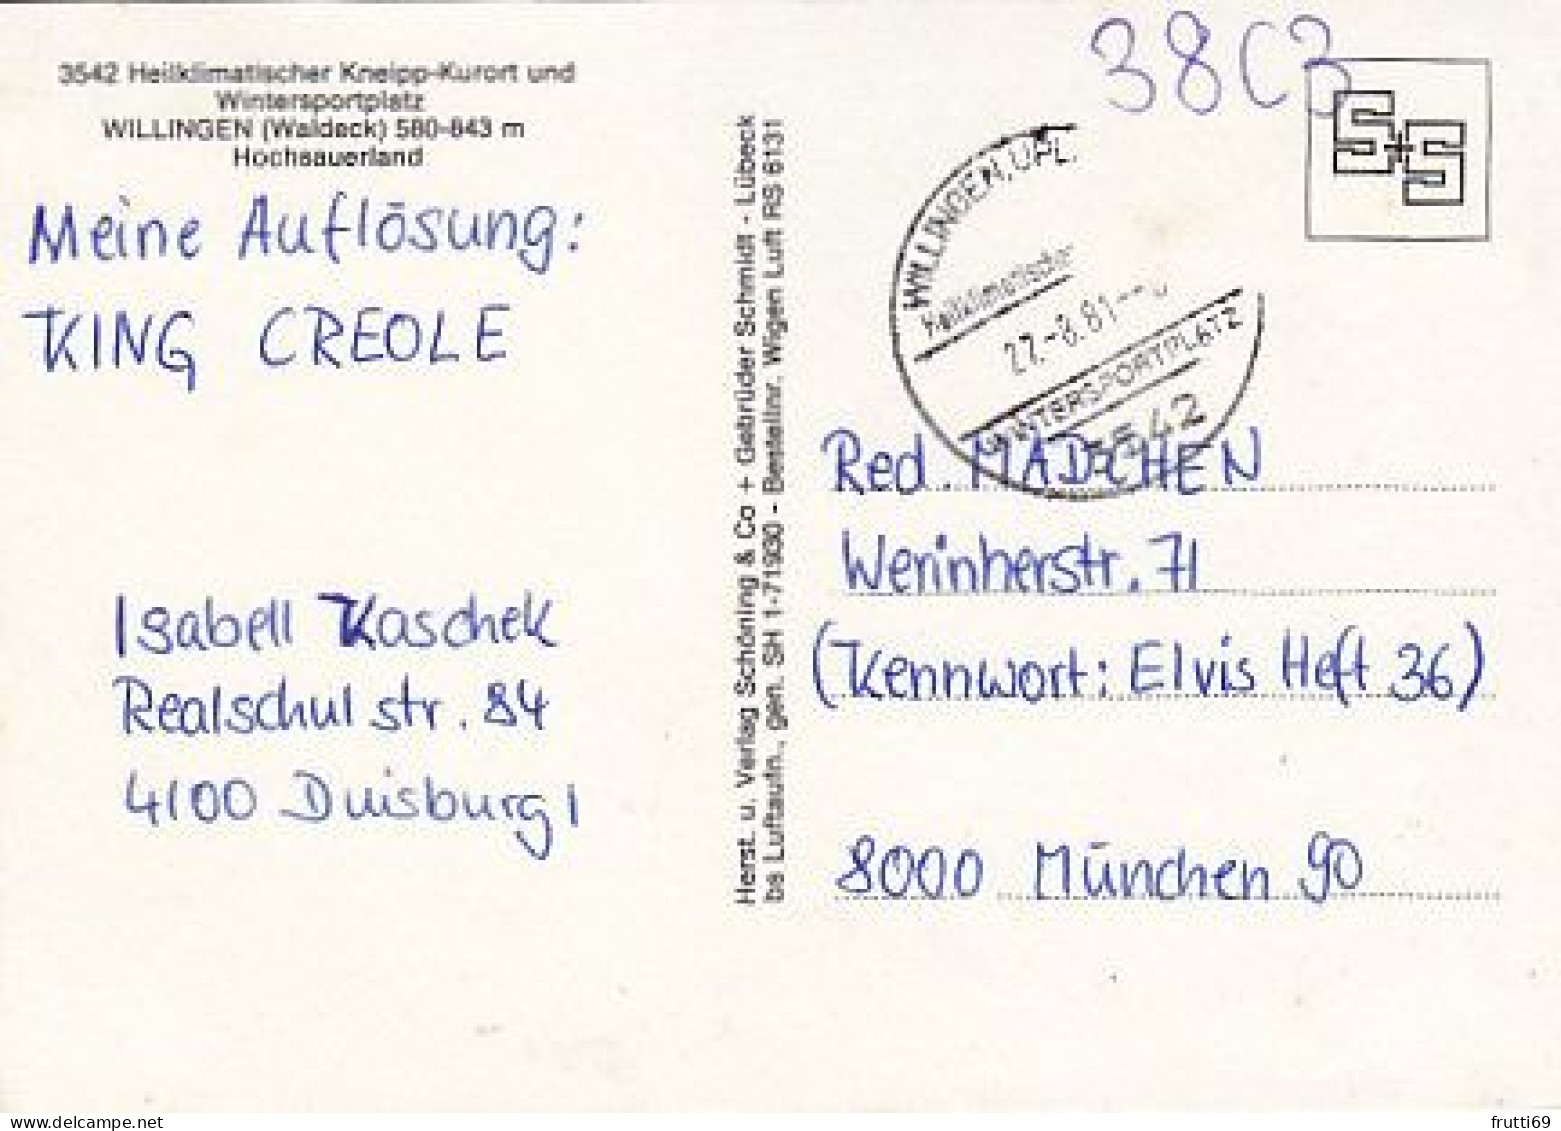 3542 Heilklimatischer Kneipp-Kurort und
Wintersportplatz
WILLINGEN (Waldeck) 580-843 m
Hochsauerland
Meine Auflösung:
KING CREOLE
Isabell Kaschek
Realschulstr. 84
4100 Duisburg 1
Herst. u. Verlag Schöning & Co + Gebrüder Schmidt - Lübeck
bs Luftaufn., gen. SH 1-71930 - Bestellnr. Wigen Luft RS 6131
38C3
S+S
WILLINGEN, UPL.
Heilklimatischer
27.-8.81
WINTERSPORTPLATZ
3542
Red. MÄDCHEN
Werinherstr. 71
(Kennwort: Elvis Heft 36)
8000 München 90
frutti69